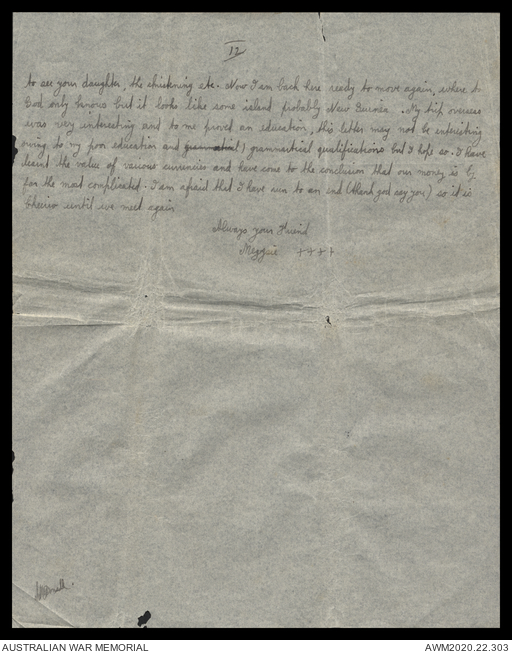 12
to see your daughter, the chickening etc. Now I am back here ready to move again, where to
God only knows but it looks like some island probably New Guinea. My trip overseas
was very interesting and to me proved an education, this letter may not be interesting
owing to my poor education and grammatical qualifications but I hope so. I have
learnt the value of various currencies and have come to the conclusion that our money is by
far the most complicated. I am afraid that I have run to an end (thank god say you) so it is
Cheerio until we meet again
Always your friend
++++
AUSTRALIAN WAR MEMORIAL
AWM2020.22.303